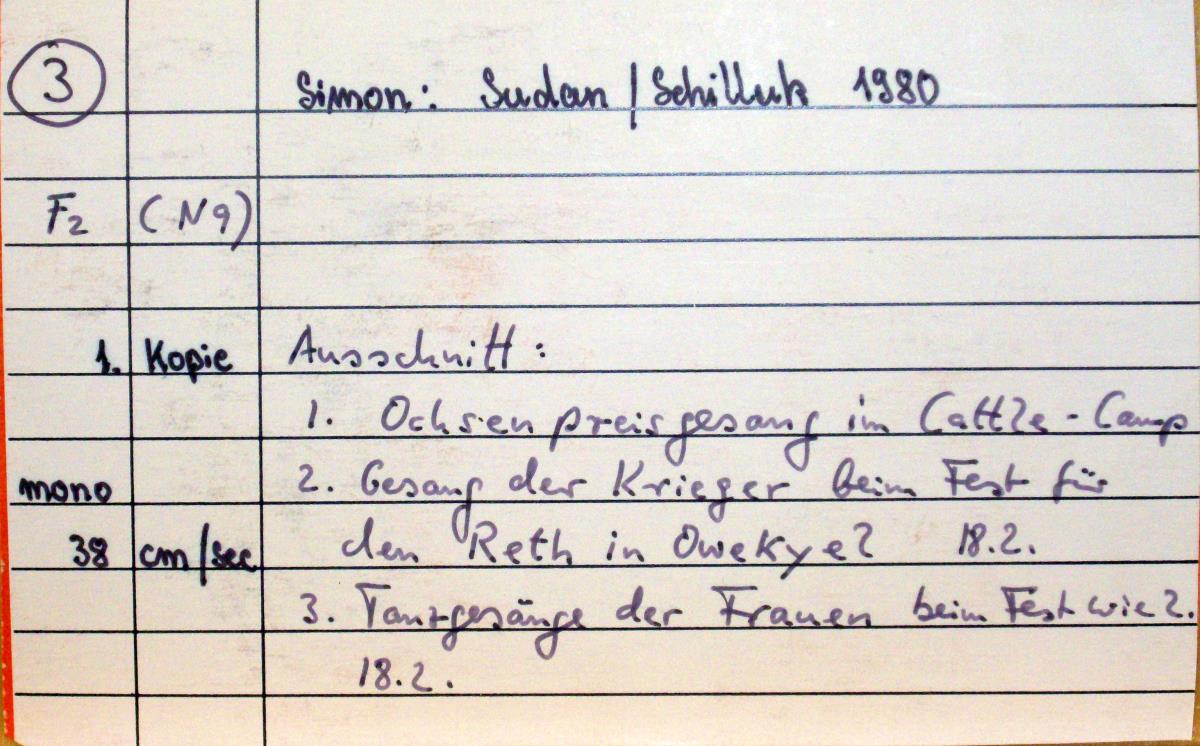 3 Simon: Sudan / Schilluk 1980
F2 (N9)
1. Kopie Ausschnitt:
1. Ochsenpreisgesang im Cattle-Camp
mono 2. Gesang der Krieger beim Fest für
38 cm/sec den Reth in Owekyel 18.2.
3. Tanzgesänge der Frauen beim Fest wie 2.
18.2.